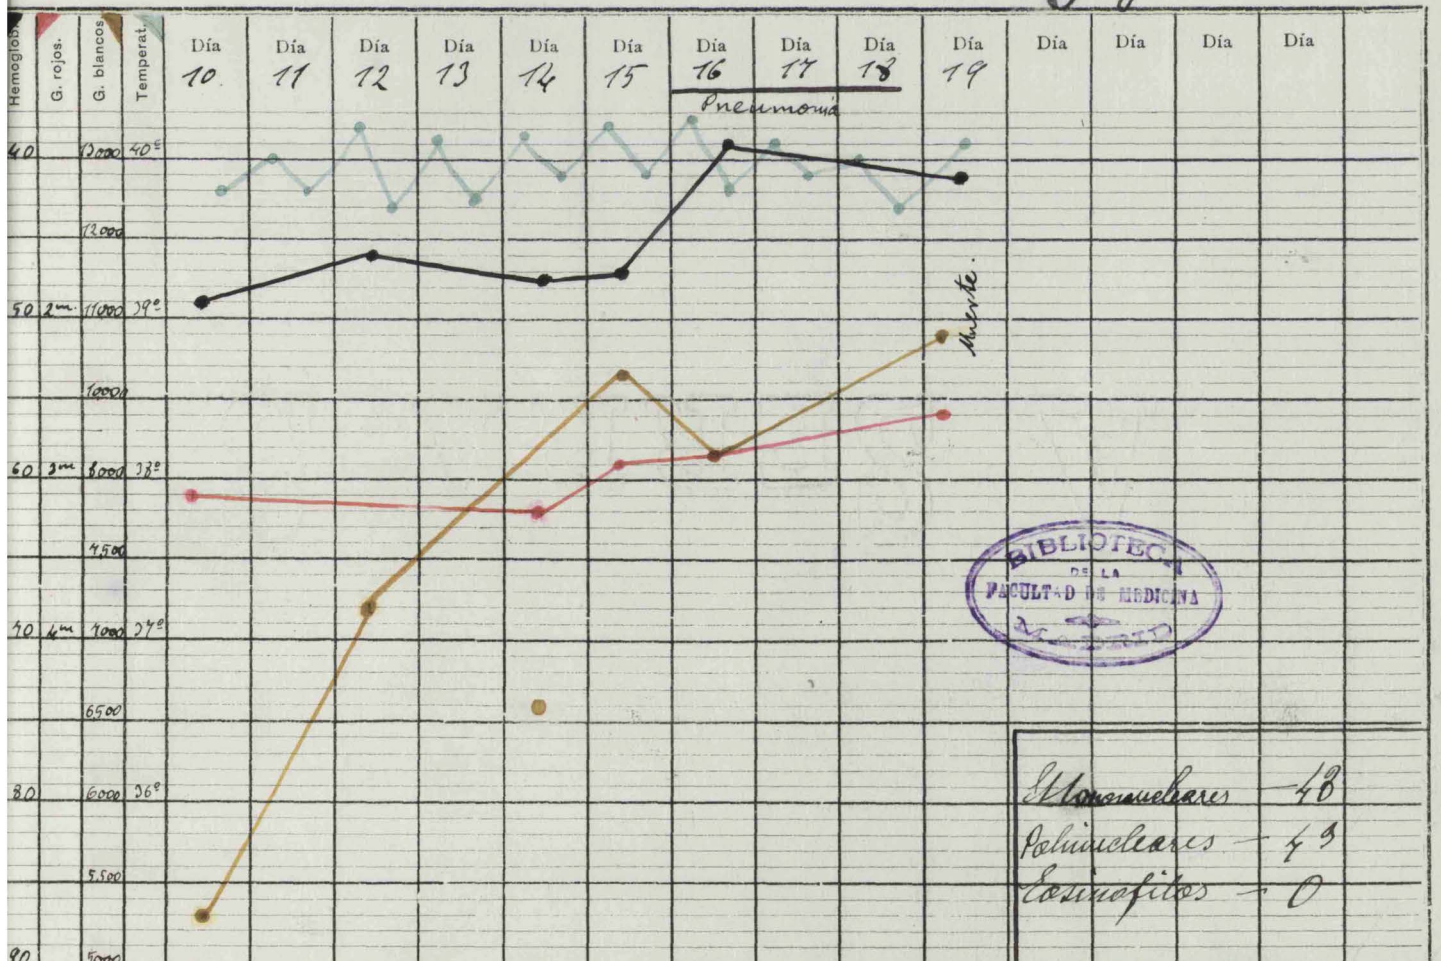 Hemoglob. G. rojos. G. blancos Temperat.
Día Día Día Día Día Día Día Día Día Día Día Día Día Día
10 11 12 13 14 15 16 17 18 19
Pneumonia
40 13000 40º
12000
50 2m. 11000 39º
Muerte.
10000
60 3m 8000 38º
7,500
70 4m 7000 37º
6500
80 6000 36º
5,500
90 5000
BIBLIOTECA
DE LA
FACULTAD DE MEDICINA
MADRID
Mononucleares - 48
Polinucleares -
Eosinofilos - 0